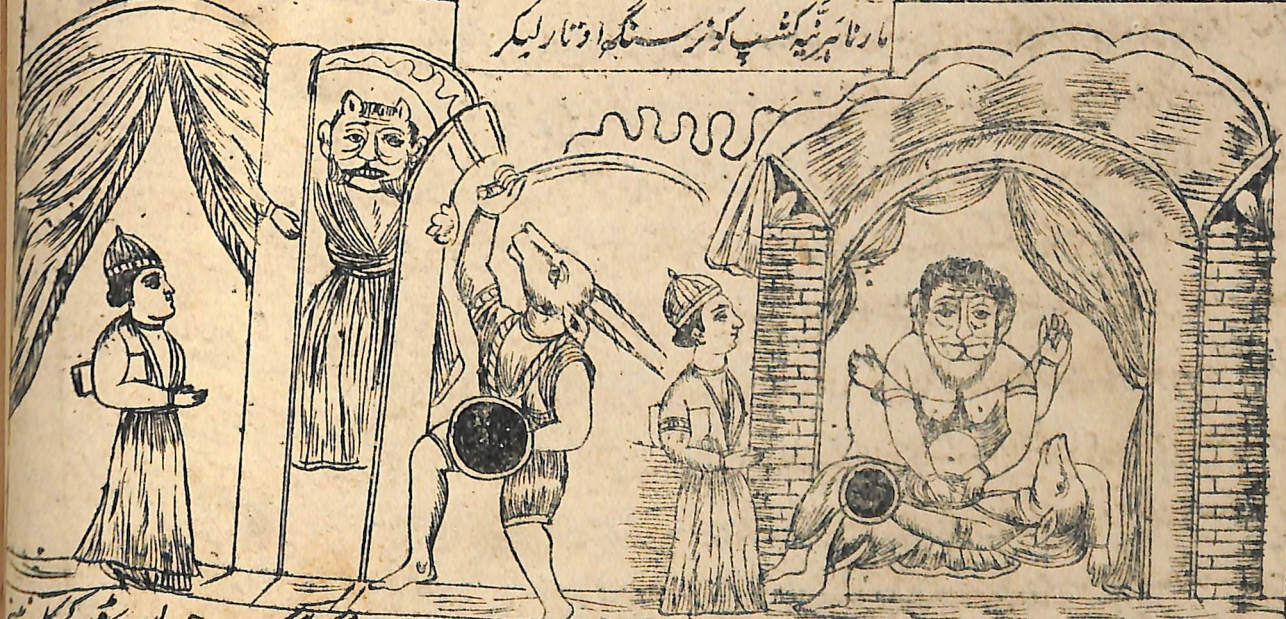 مارنا ہرنیہ کشپ کو نرسنگھ اوتار لیکر